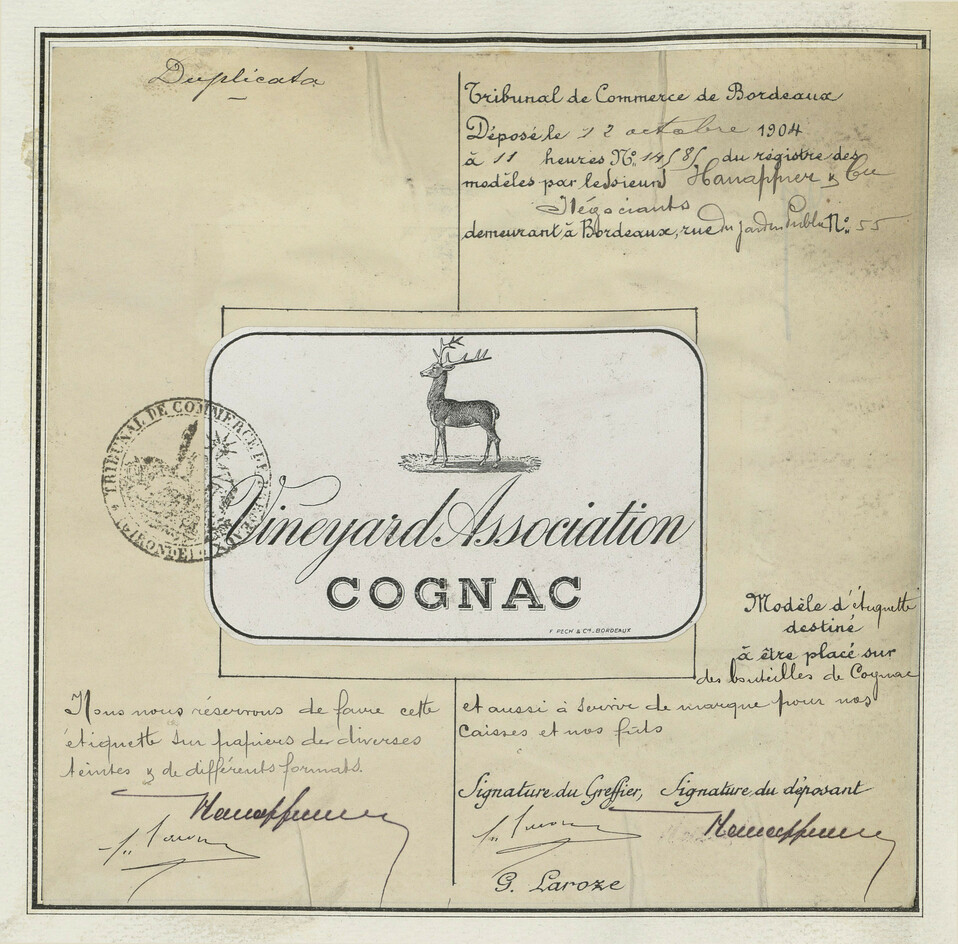 Duplicata
Tribunal de Commerce de Bordeaux
Déposé le 12 octobre 1904
à 11 heures No. 14585 du régistre des
modèles par le sieurs Hanappier & Cie
Négociants
demeurant à Bordeaux, rue du Jardin Public No. 55
TRIBUNAL DE COMMERCE DE
(GIRONDE)
Vineyard Association
COGNAC
F. PECH & Cie. BORDEAUX
Modèle d'étiquette
destiné
à être placé sur
des bouteilles de Cognac
et aussi à servir de marque pour nos
caisses et nos fûts
Nous nous réservons de faire cette
étiquette sur papiers de diverses
teintes & de différents formats.
Signature du Greffier, Signature du déposant
G. Laroze